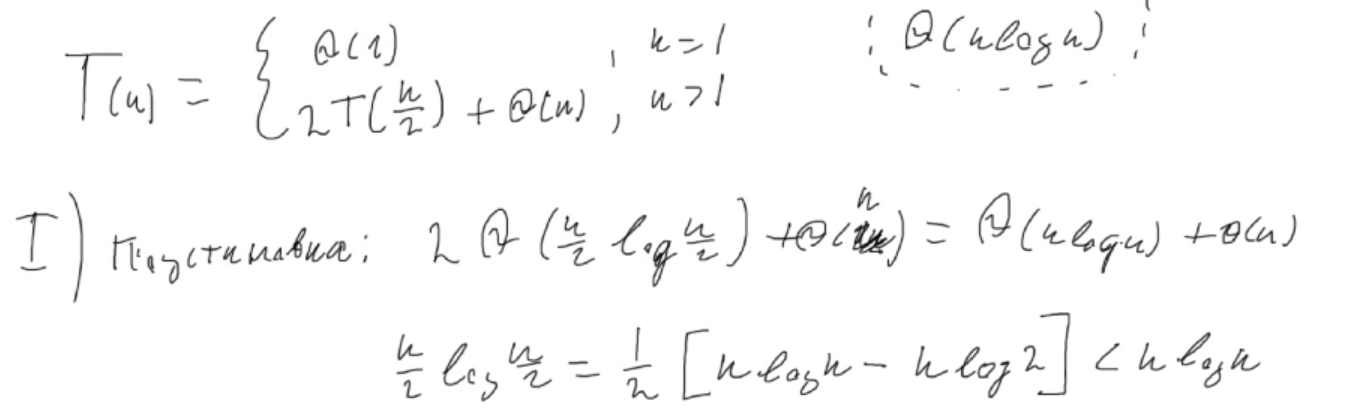 T(n) = { Θ(1) , n=1 Θ(n log n)
2T(n/2) + Θ(n) , n>1
I) Подстановка: 2 Θ(n/2 log n/2) + Θ(n) = Θ(n log n) + Θ(n)
n/2 log n/2 = 1/2 [n log n - n log 2] < n log n